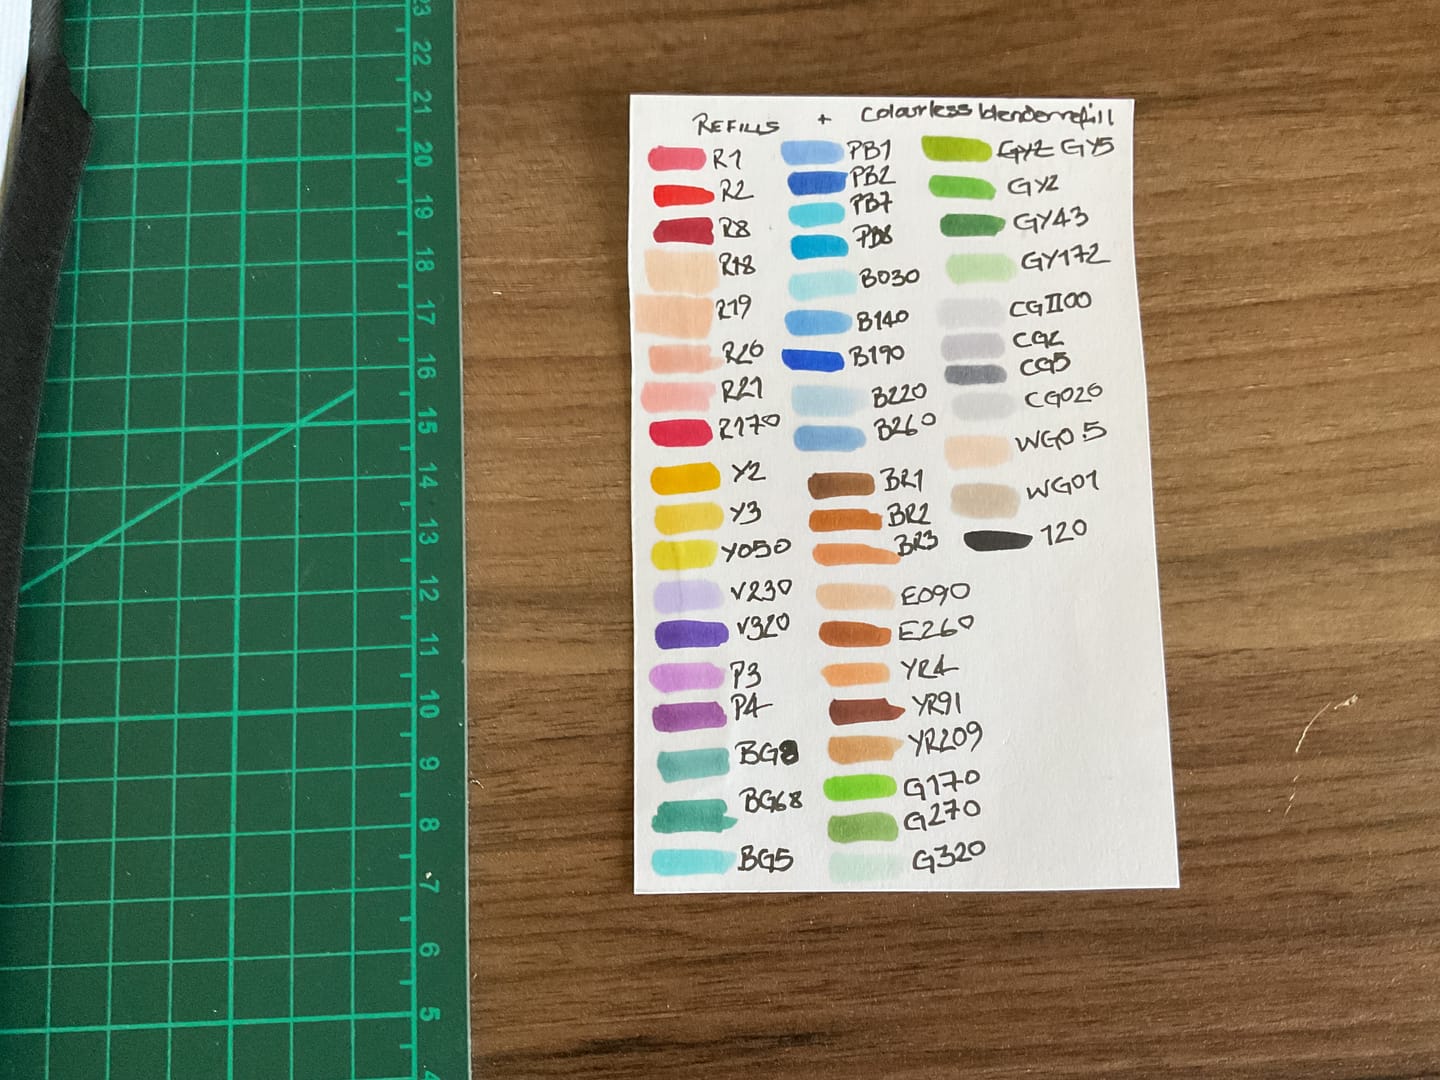 23
22
21
20
19
18
17
16
15
14
13
12
11
10
9
8
7
6
5
4
REFILLS + Colourless blender refill
R1
R2
R8
R18
R19
R20
R21
R170
Y2
Y3
Y050
V230
V320
P3
P4
BG8
BG68
BG5
PB1
PB2
PB7
PB8
B030
B140
B190
B220
B260
BR1
BR2
BR3
E090
E260
YR4
YR91
YR209
G170
G270
G320
GY2 GY5
GY2
GY43
GY172
CGII00
CG2
CG5
CG020
WG0.5
WG01
120